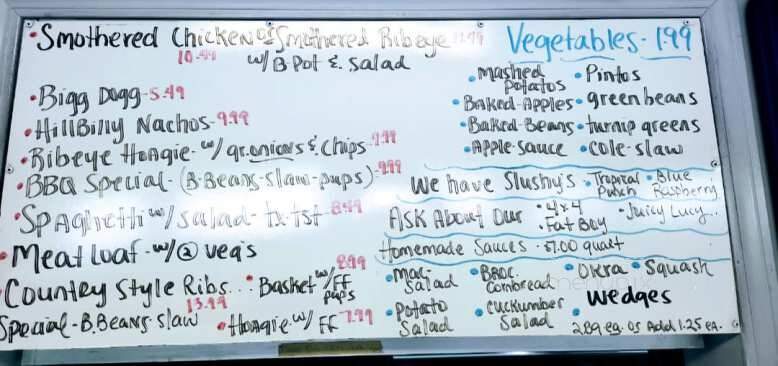 • Smothered Chicken or Smothered Ribeye 11.99
10.49 w/ B. Pot & Salad
• Bigg Dogg - 5.49
• Hillbilly Nachos - 9.99
• Ribeye Hoagie - w/ gr. onions & Chips 9.99
• BBQ Special - (B-Beans-slaw-pups) 9.99
• Spaghetti w/ salad - tx-tst 8.49
• Meatloaf - w/ ② veg's
8.99
Country Style Ribs... • Basket w/ FF pups
13.99
Special - B. Beans slaw • Hoagie w/ FF 7.99
Vegetables - 1.99
• Mashed Potatos • Pintos
• Baked-Apples • green beans
• Baked-Beans • turnip greens
• Apple-Sauce • Cole-slaw
We have Slushy's • Tropical Punch • Blue Raspberry
Ask About our • 4x4 • Fat Boy • Juicy Lucy..
Homemade Sauces - $7.00 quart
• Mac-Salad • Broc. Cornbread • Okra • Squash
• Potato Salad • Cuckumber Salad • Wedges
2.89 ea. or Add 1.25 ea.